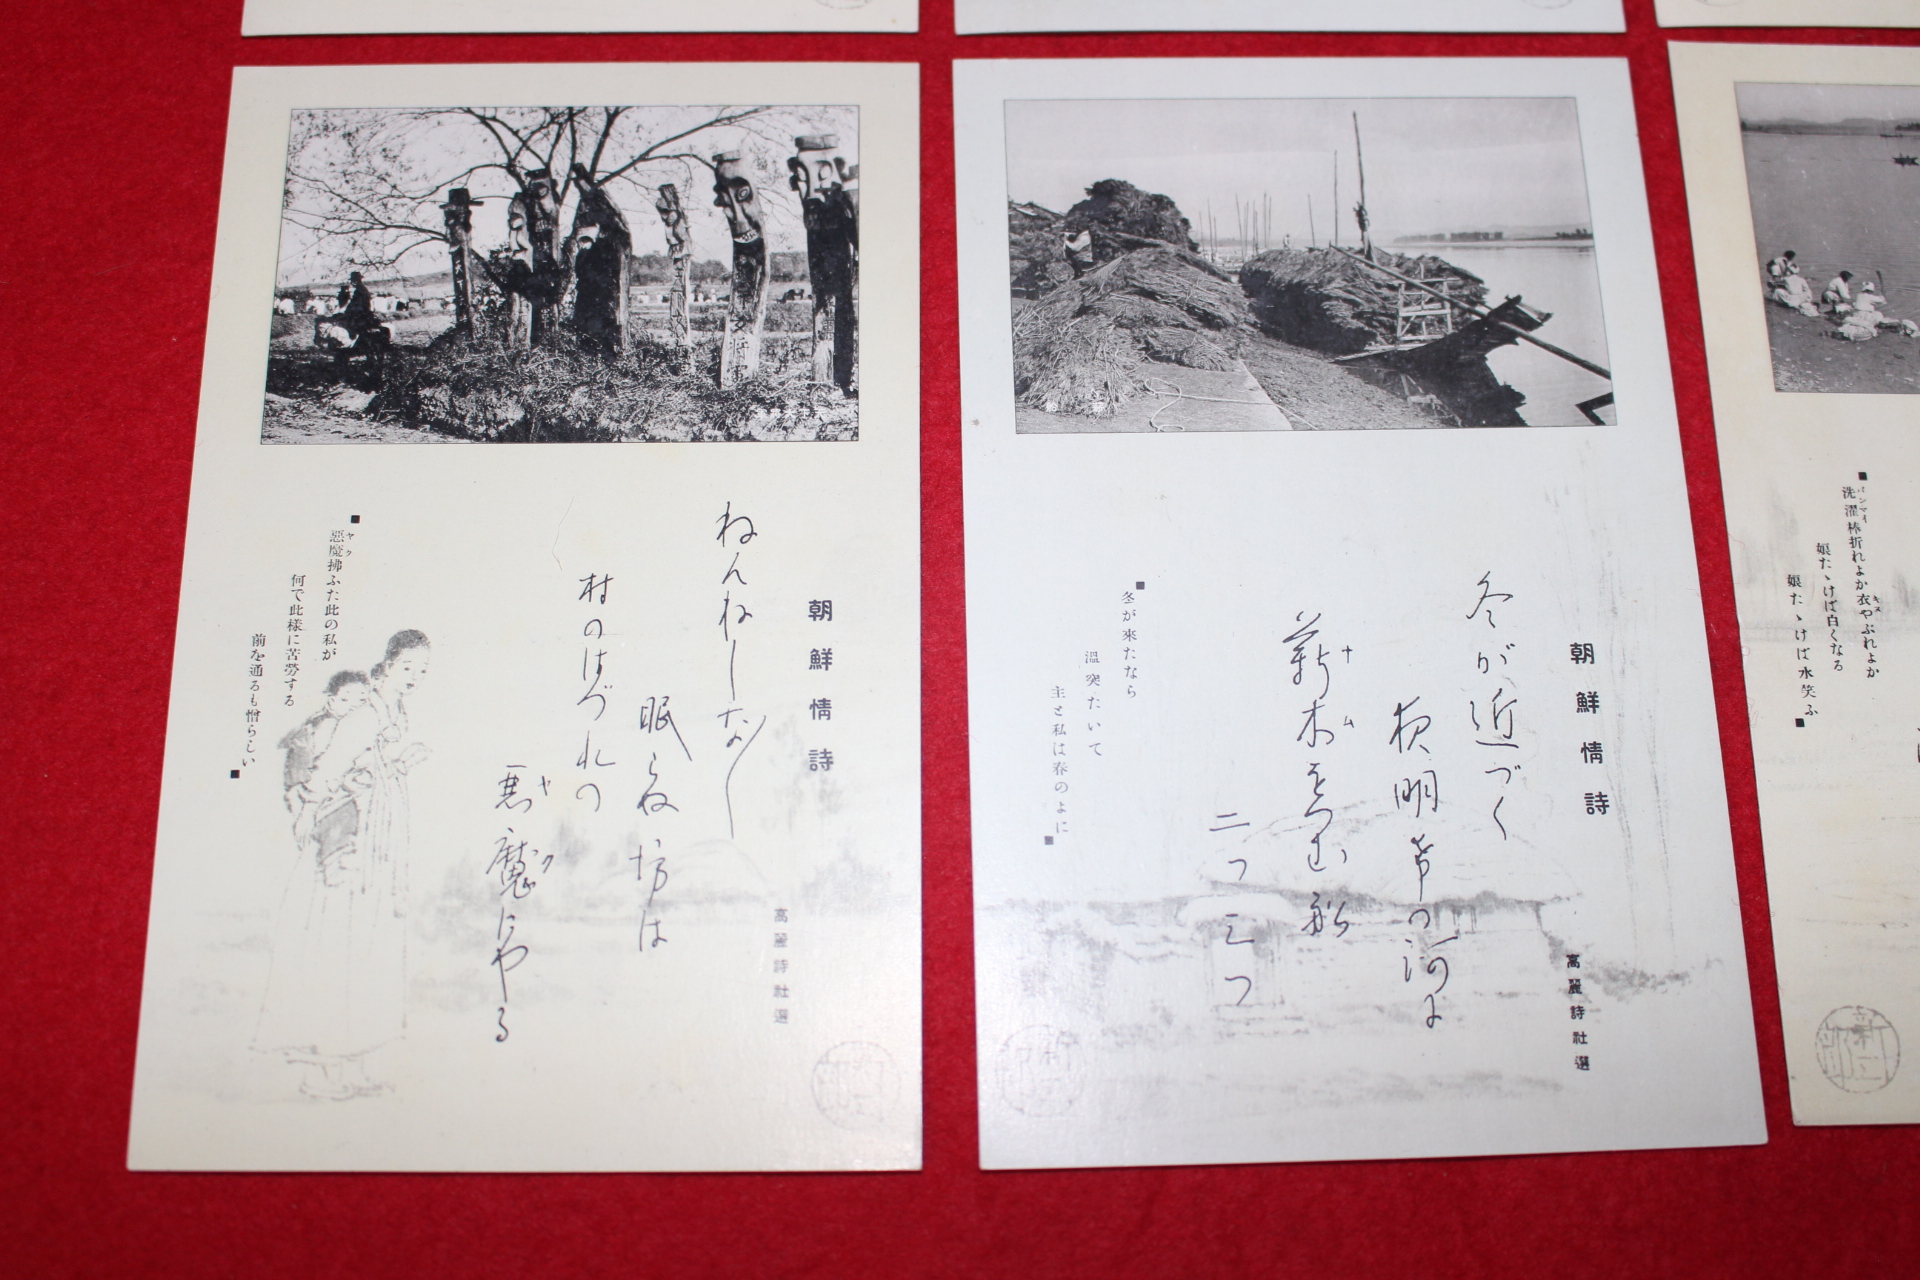 朝鮮情詩
高麗詩社選
ねんねしなー
眠らね坊は
村のはづれの
悪魔にやる
ヤク
■悪魔拂ふた此の私が
ヤク
何で此様に苦勞する
前を通るも憎らしい■
朝鮮情詩
高麗詩社選
冬が近づく
夜明け前の河に
薪木をつむ船
ナム
二つ三つ
■冬が來たなら
溫突たいて
主と私は春のよに■
■洗濯棒折れよか衣やぶれよか
パンマイ
キヌ
娘たゝけば白くなる
娘たゝけば水笑ふ■